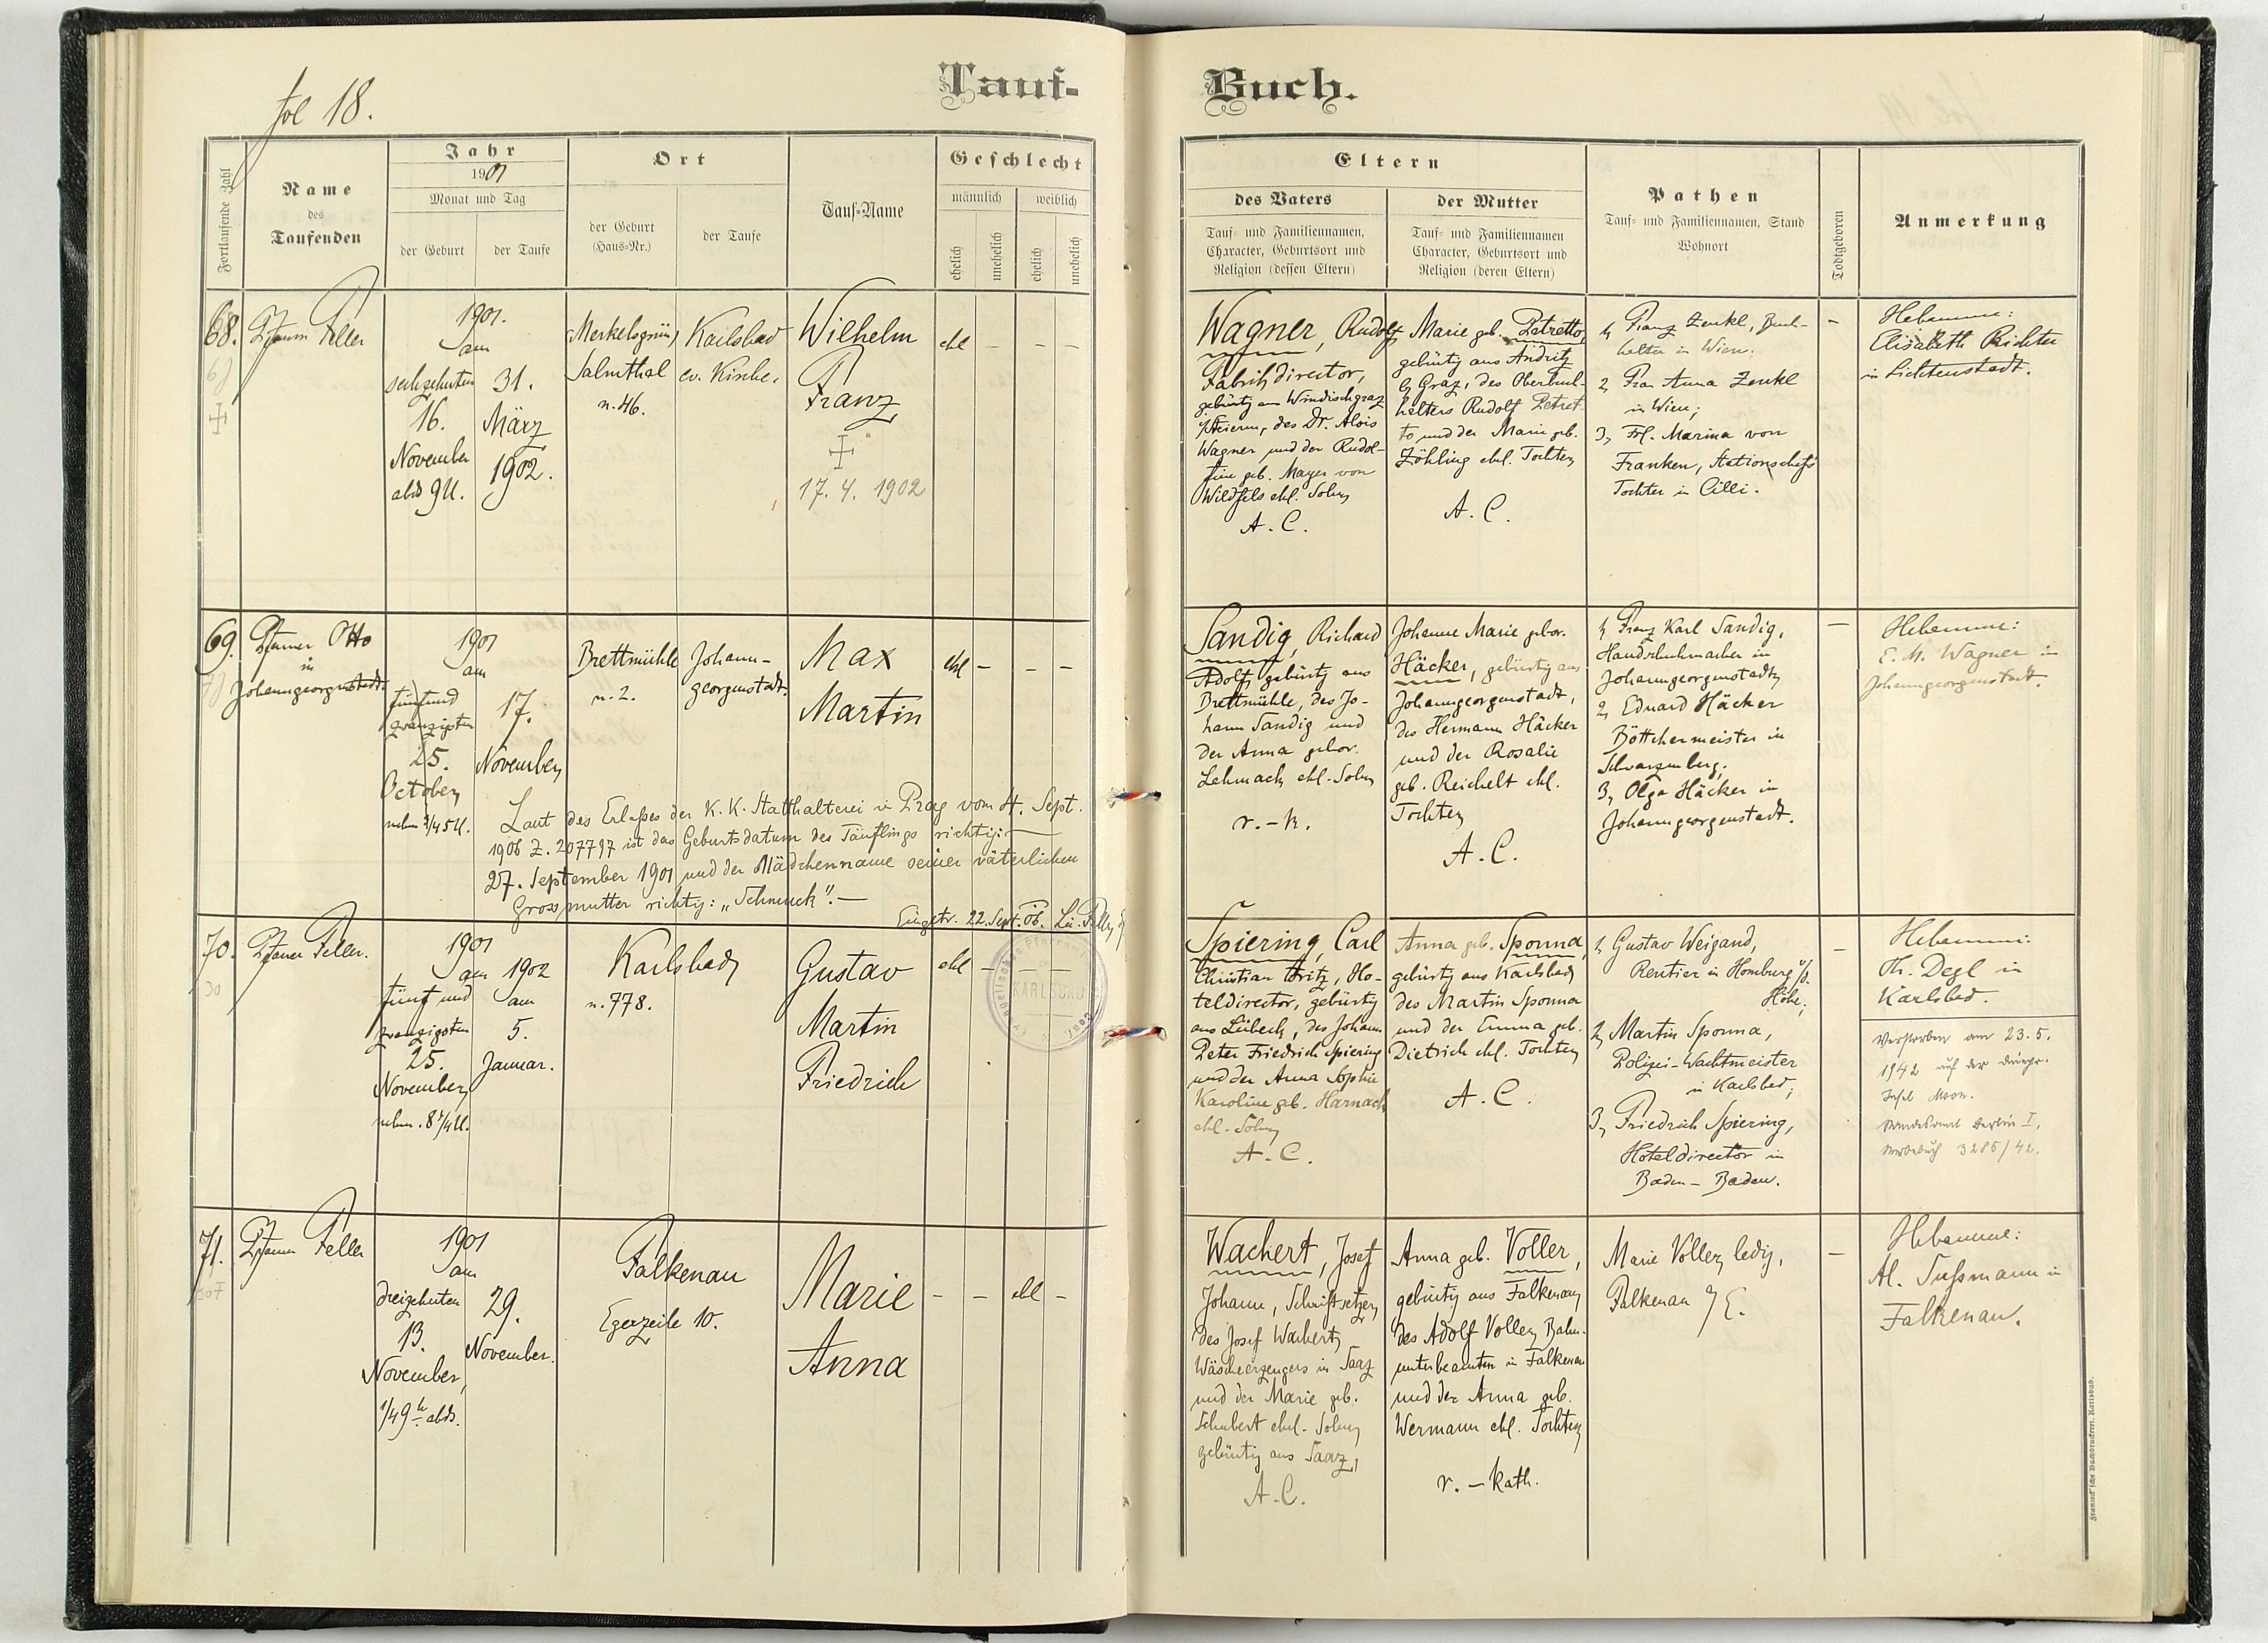 fol 18.
Tauf-
Buch.
Fortlaufende Zahl
Name
des
Taufenden
Jahr
1901
Monat und Tag
der Geburt
der Taufe
Ort
der Geburt
(Haus-Nr.)
der Taufe
Tauf-Name
Geschlecht
männlich
weiblich
ehelich
unehelich
ehelich
unehelich
Eltern
des Vaters
Tauf- und Familiennamen,
Character, Geburtsort und
Religion (dessen Eltern)
der Mutter
Tauf- und Familiennamen
Character, Geburtsort und
Religion (deren Eltern)
Pathen
Tauf- und Familiennamen, Stand
Wohnort
Todtgeboren
Anmerkung
68.
Pfarrer Feller
1901.
am
sechzehnten
16.
November
abds 9 U.
31.
März
1902.
Merkelsgrün,
Salmthal
n. 46.
Karlsbad
ev. Kirche.
Wilhelm
Franz
17. 4. 1902
ehl
–
–
–
Wagner, Rudolf
Fabriksdirector,
gebürtig aus Windischgraz
Steierm., des Dr. Alois
Wagner und der Rudol-
fine geb. Mayer von
Wildfels ehl. Sohn
A. C.
Marie geb. Petretto,
gebürtig aus Andritz
b/ Graz, des Oberbuch-
halters Rudolf Petret-
to und der Marie geb.
Zöhling ehl. Tochter
A. C.
1, Franz Zenkl, Buch-
halter in Wien.
2, Frau Anna Zenkl
in Wien;
3, Frl. Marina von
Franken, Stationschefs
Tochter in Cilli.
–
Hebamme:
Elisabeth Richter
in Lichtenstadt.
69.
Pfarrer Otto
in
Johanngeorgenstadt.
1901
am
fünfund
zwanzigsten
25.
October
nchm 3/4 5 U.
17.
November
Brettmühle
n. 2.
Johann-
georgenstadt.
Max
Martin
ehl
–
–
–
Laut des Erlaßes der K. K. Statthalterei in Prag vom 4. Sept.
1906 Z. 207797 ist das Geburtsdatum des Täuflings richtig:
27. September 1901 und der Mädchenname seiner väterlichen
Grossmutter richtig: „Schmuck". –
Eingetr. 22. Sept. 06.
Sandig, Richard
Adolf gebürtig aus
Brettmühle, des Jo-
hann Sandig und
der Anna gebor.
Lehmack ehl. Sohn
r. - k.
Johanne Marie gebor.
Häcker, gebürtig aus
Johanngeorgenstadt,
des Hermann Häcker
und der Rosalie
geb. Reichelt ehl.
Tochter
A. C.
1, Franz Karl Sandig,
Handschuhmacher in
Johanngeorgenstadt,
2, Eduard Häcker
Böttchermeister in
Schwarzenberg;
3, Olga Häcker in
Johanngeorgenstadt.
–
Hebamme:
E. M. Wagner in
Johanngeorgenstadt.
70.
Pfarrer Feller.
1901
am
fünf und
zwanzigsten
25.
November
nchm. 8 1/4 U.
1902
am
5.
Januar.
Karlsbad
n. 778.
Gustav
Martin
Friedrich
ehl
–
–
–
KARLSBAD
Spiering, Carl
Christian Fritz, Ho-
teldirector, gebürtig
aus Lübeck, des Johann
Peter Friedrich Spiering
und der Anna Sophie
Karoline geb. Harnack
ehl. Sohn
A. C.
Anna geb. Sponna,
gebürtig aus Karlsbad
des Martin Sponna
und der Emma geb.
Dietrich ehl. Tochter
A. C.
1, Gustav Weigand,
Rentier in Homburg v/d.
Höhe;
2, Martin Sponna,
Polizei-Wachtmeister
in Karlsbad;
3, Friedrich Spiering,
Hoteldirector in
Baden-Baden.
–
Hebamme:
Th. Degl in
Karlsbad.
Verstorben am 23. 5.
1942 auf der
Insel Moon.
Standesamt Berlin I,
Sterbebuch 3285/42.
71.
Pfarrer Feller
1901
am
dreizehnten
13.
November,
1/4 9 h abds.
29.
November.
Falkenau
Egerzeile 10.
Marie
Anna
–
–
ehl
–
Wachert, Josef
Johann, Schriftsetzer,
des Josef Wachert,
Wäscheerzeugers in Saaz
und der Marie geb.
Schubert ehel. Sohn,
gebürtig aus Saaz,
A. C.
Anna geb. Voller,
gebürtig aus Falkenau,
des Adolf Voller, Bahn-
unterbeamten in Falkenau
und der Anna geb.
Wermann ehl. Tochter
r. - kath.
Marie Voller, ledig,
Falkenau a/E.
–
Hebamme:
Al. Sußmann in
Falkenau.